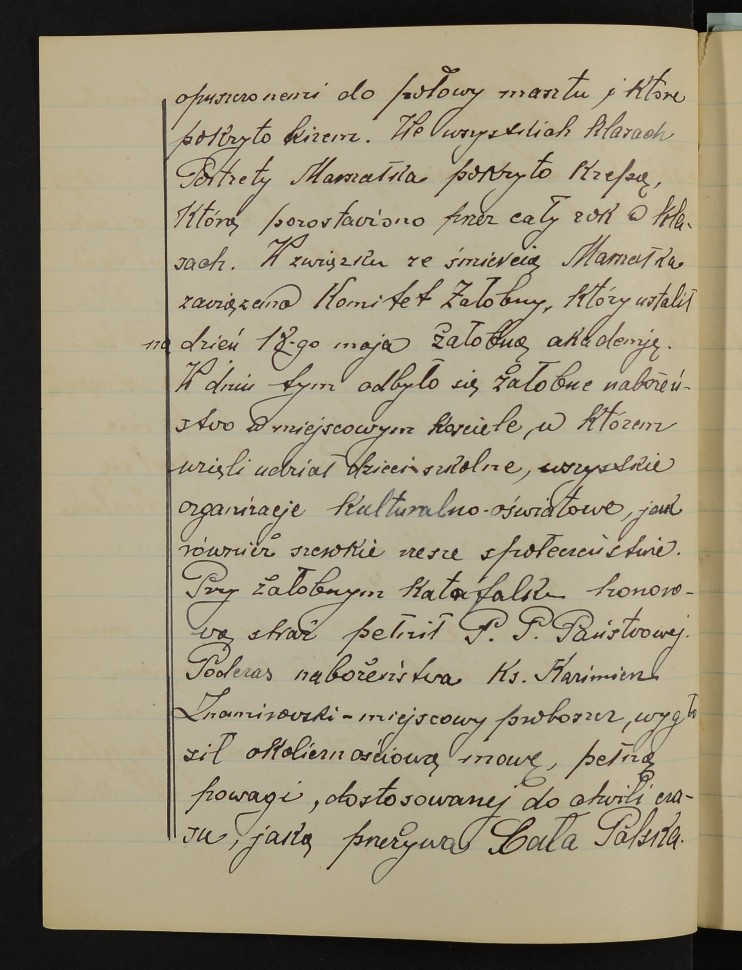 opuszczonemi do połowy masztu i które
pokryto kirem. We wszystkich klasach
Portrety Marszałka pokryto Krepą,
którą pozostawiono przez cały rok w kla-
sach. W związku ze śmiercią Marszałka
zawiązano Komitet Żałobny, który ustalił
na dzień 18-go maja żałobną akademję.
W dniu tym odbyło się żałobne nabożeń-
stwo w miejscowym kościele, w którem
wzięli udział dzieci szkolne, wszystkie
organizacje kulturalno-oświatowe, jak
również szerokie rzesze społeczeństwa.
Przy żałobnym katafalku honoro-
wą straż pełnił P. P. Państwowej.
Podczas nabożeństwa Ks. Kazimierz
Znamirowski - miejscowy proboszcz, wygło
sił okolicznościową mowę, pełną
powagi, dostosowanej do chwili cza-
su, jaką przeżywa Cała Polska.